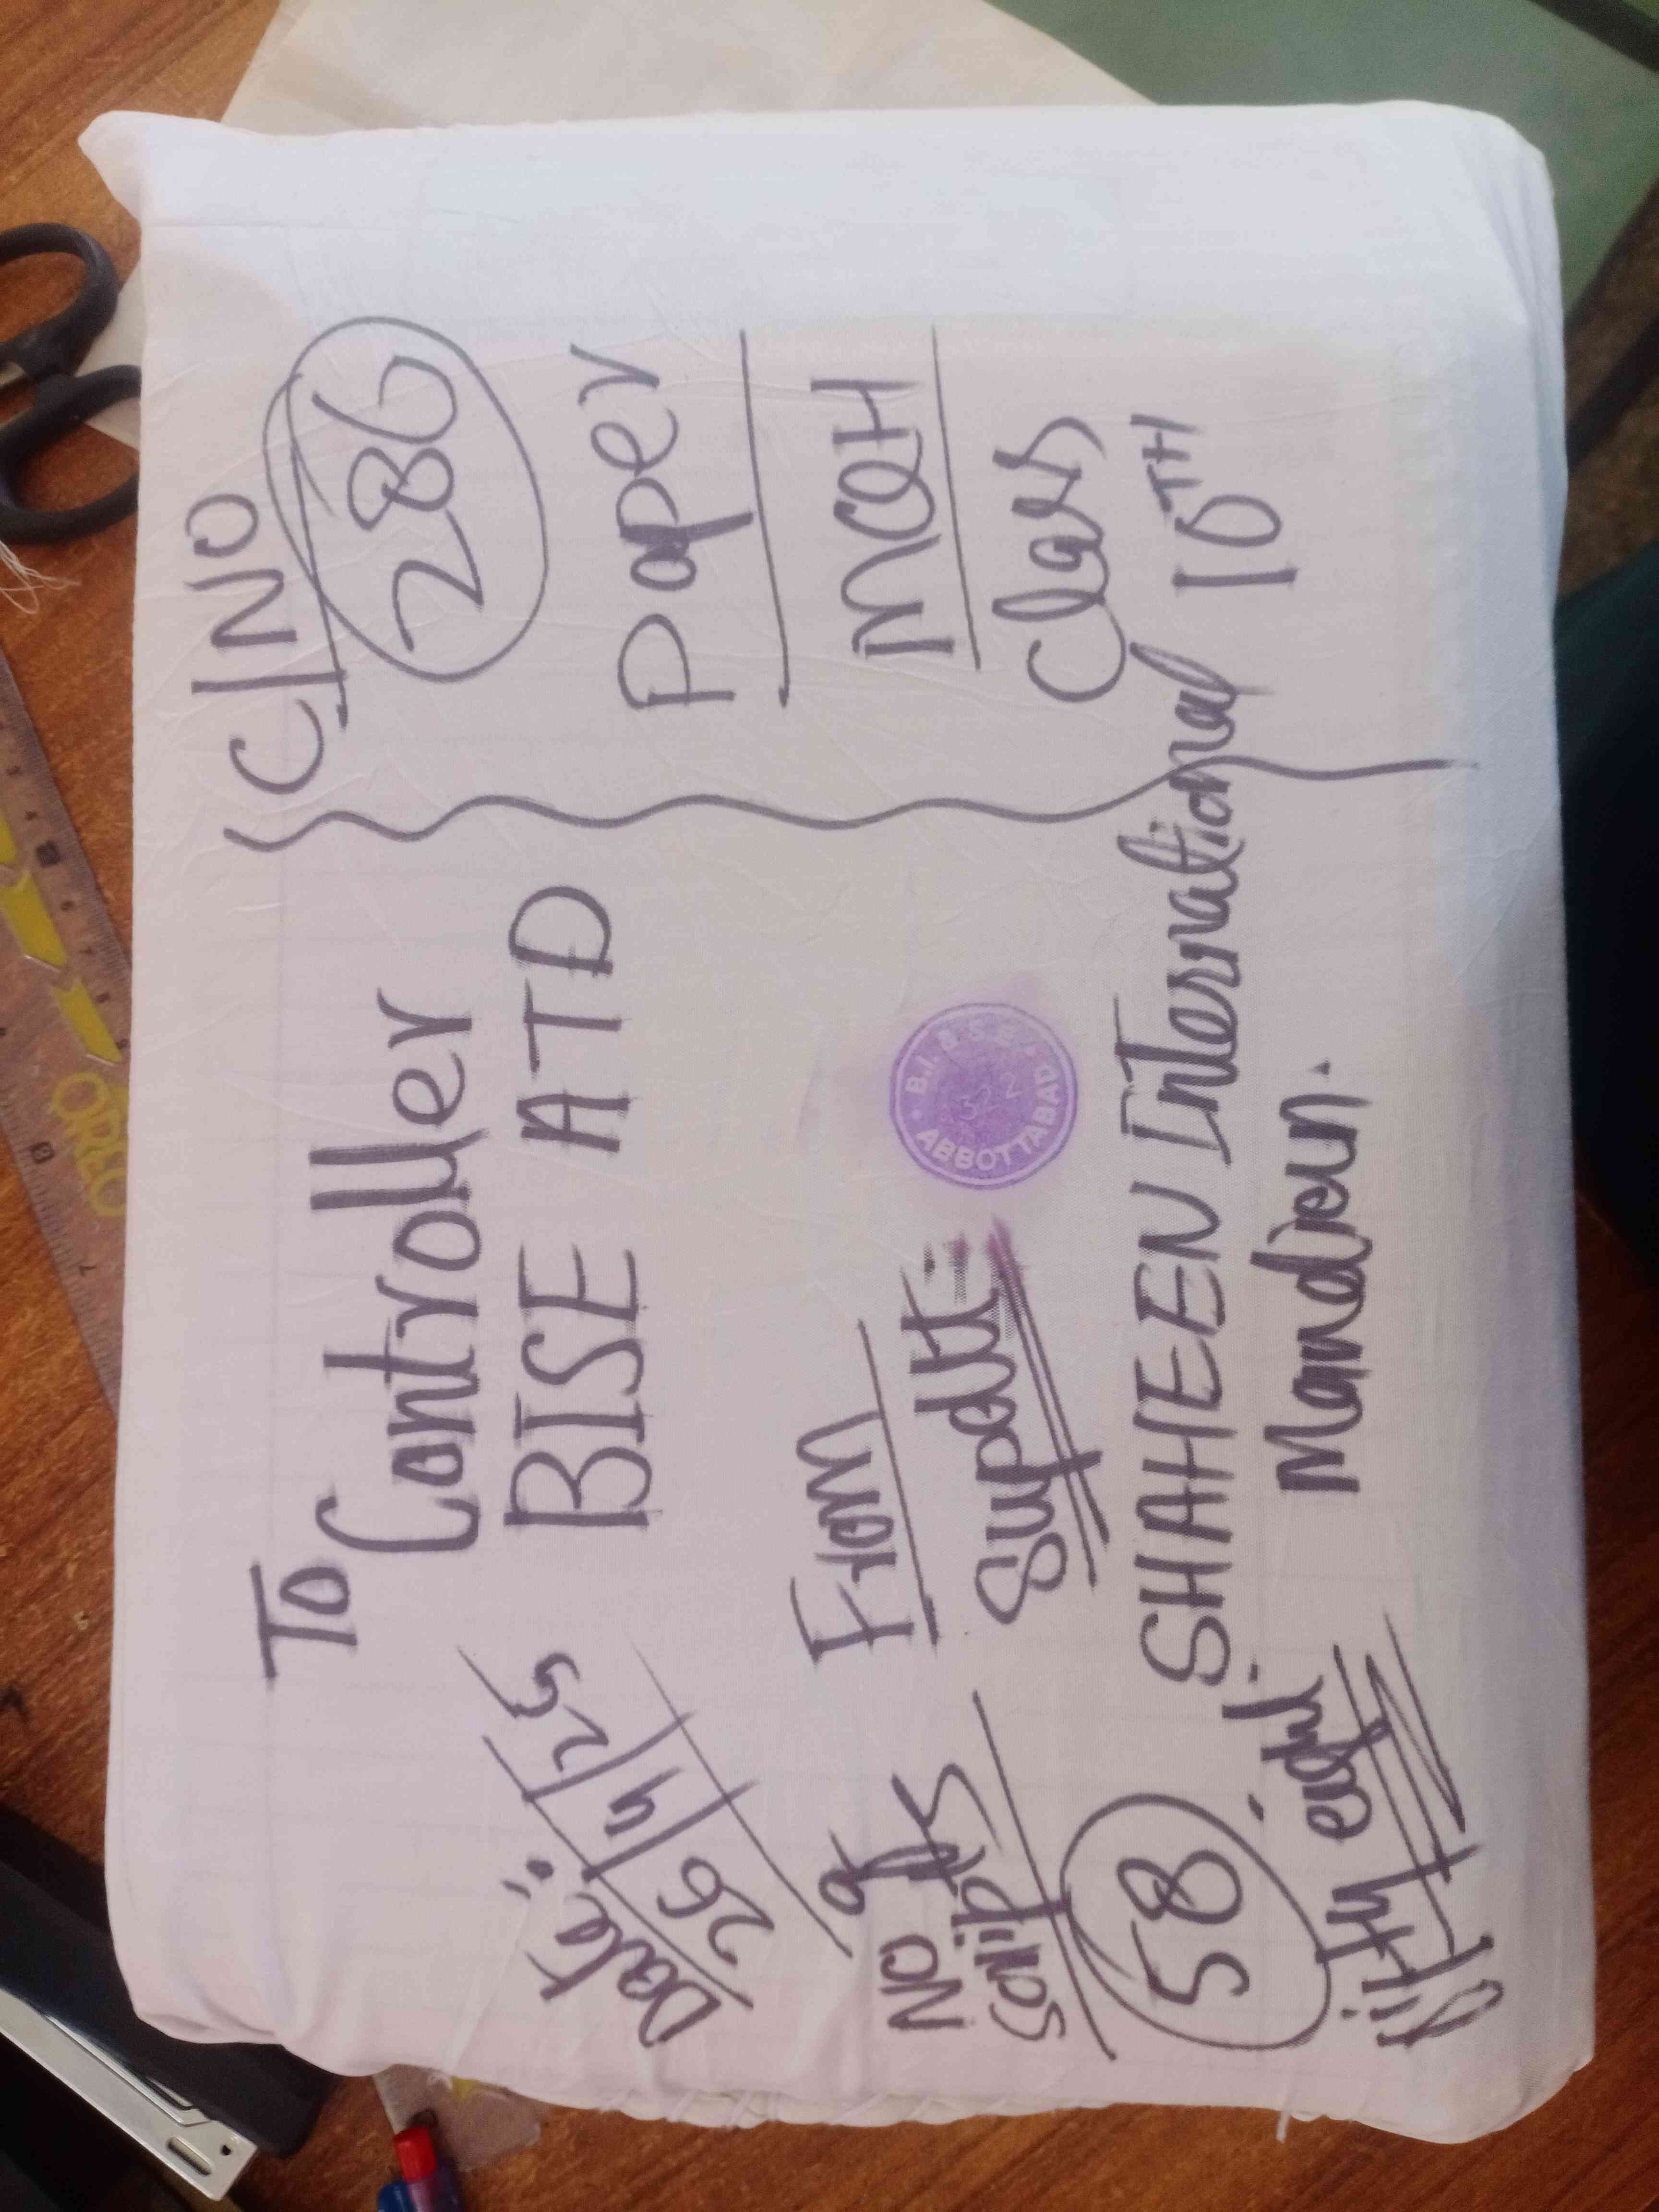 To
Controller
BISE ATD
Date:
26/4/25
From
Supdtt:
B.I. & S.E.
ABBOTTABAD
SHAHEEN International
Mandian.
No of
Scripts
58
Fifty eight
C/NO
286
Paper
MQH
Class
10TH
OREO